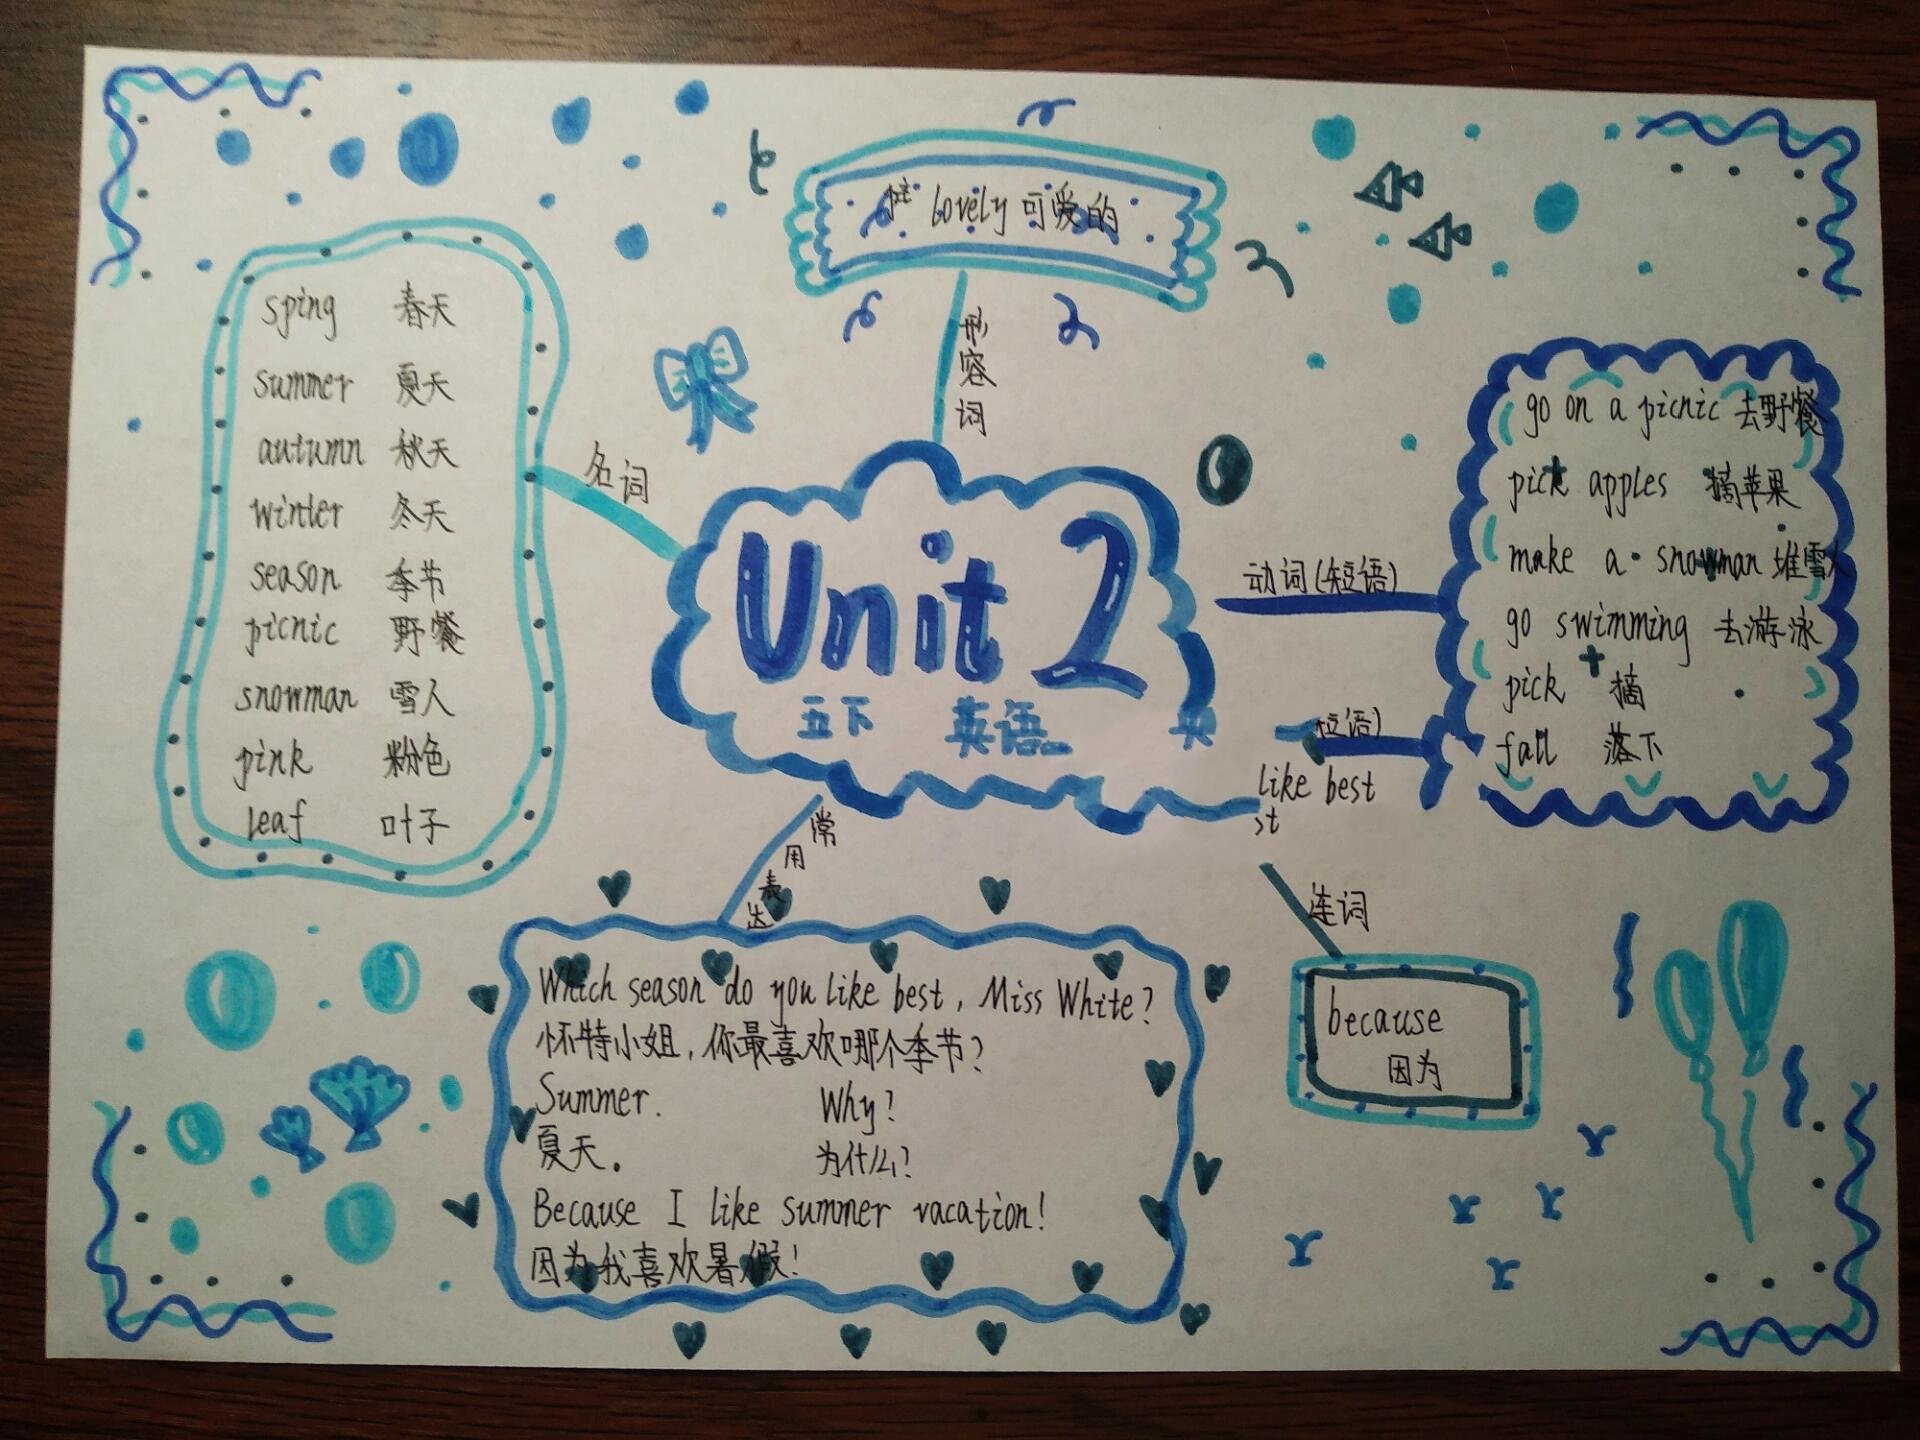 lovely 可爱的
形容词
sping 春天
summer 夏天
autumn 秋天
winter 冬天
season 季节
picnic 野餐
snowman 雪人
pink 粉色
leaf 叶子
名词
Unit 2
五下 英语
动词(短语)
短语)
like best
st
go on a picnic 去野餐
pick apples 摘苹果
make a snowman 堆雪人
go swimming 去游泳
pick 摘
fall 落下
常用表达
Which season do you like best, Miss White?
怀特小姐,你最喜欢哪个季节?
Summer. Why?
夏天。 为什么?
Because I like summer vacation!
因为我喜欢暑假!
连词
because
因为